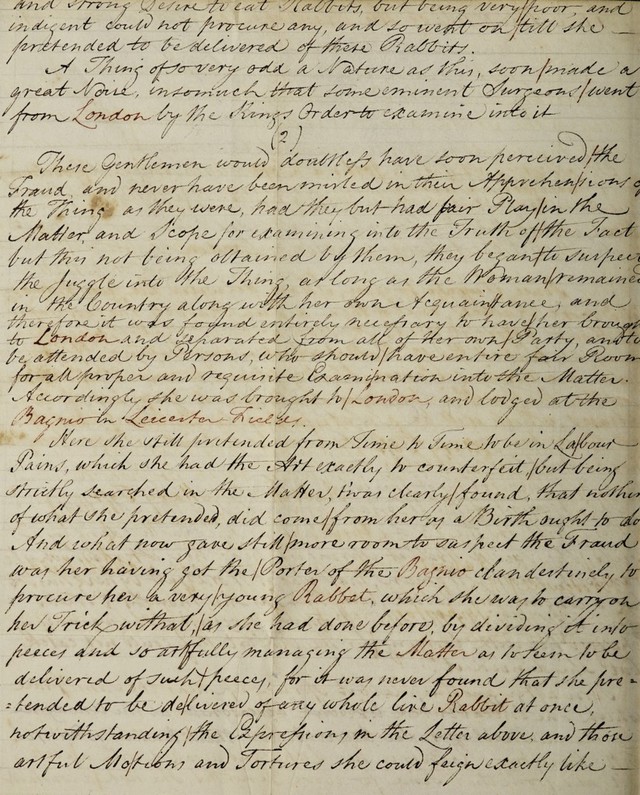 and strong Desire to eat Rabbits, but being very poor and
indigent could not procure any, and so went on till she
pretended to be delivered of these Rabbits.
A Thing of so very odd a Nature as this, soon made a
great Noise, insomuch that some eminent Surgeons went
from London by the Kings Order to examine into it
(2)
These Gentlemen would doubtless have soon perceived the
Fraud, and never have been misled in their Apprehensions of
the Thing as they were, had they but had fair Play in the
Matter, and Scope for examining into the Truth of the Fact
but this not being obtained by them, they began to suspect
the juggle into the Thing, as long as the Woman remained
in the Country along with her own Acquaintance, and
therefore it was found entirely necessary to have her brought
to London and separated from all of her own Party, and to
be attended by Persons, who should have entire fair Room
for all proper and requisite Examination into the Matter.
Accordingly she was brought to London, and lodged at the
Bagnio in Leicester Fields.
Here she still pretended from Time to Time to be in Labour
Pains, which she had the Art exactly to counterfeit, but being
strictly searched in the Matter, twas clearly found, that nothing
of what she pretended, did come from her as a Birth ought to do
And what now gave still more room to suspect the Fraud
was her having got the Porter of the Bagnio clandestinely to
procure her a very young Rabbet, which she was to carry on
her Trick withal, as she had done before, by dividing it into
peeces and so artfully managing the Matter as to seem to be
delivered of such peeces, for it was never found that she pre=
=tended to be delivered of any whole live Rabbit at once,
notwithstanding the Expressions in the Letter above, and those
artful Motions and Tortures she could feign exactly like